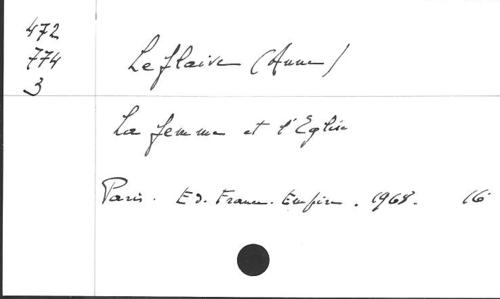 472
774
3
Le flaive (Anne)
La femme et l'Eglise
Paris. Ed. France. Empire. 1968. 16